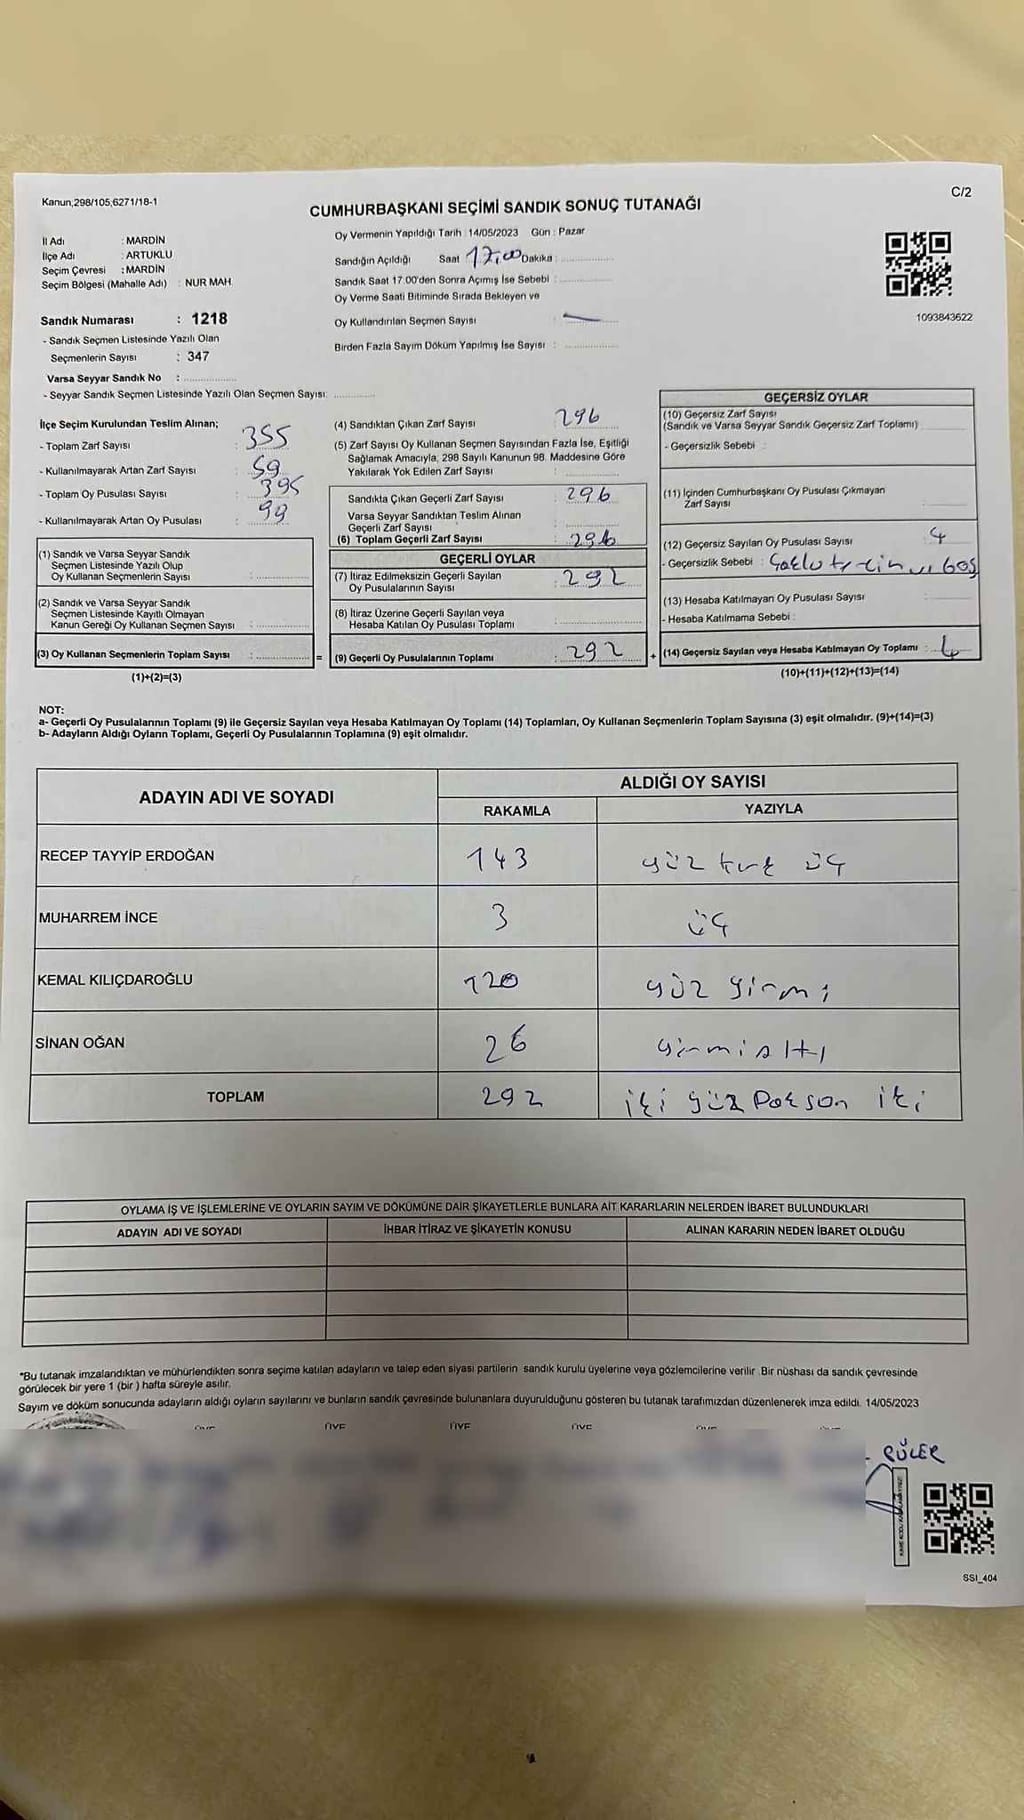 Kanun,298/105,6271/18-1
C/2
CUMHURBAŞKANI SEÇİMİ SANDIK SONUÇ TUTANAĞI
İl Adı : MARDİN
İlçe Adı : ARTUKLU
Seçim Çevresi : MARDİN
Seçim Bölgesi (Mahalle Adı) : NUR MAH.
Sandık Numarası : 1218
- Sandık Seçmen Listesinde Yazılı Olan
Seçmenlerin Sayısı : 347
Varsa Seyyar Sandık No :
- Seyyar Sandık Seçmen Listesinde Yazılı Olan Seçmen Sayısı:
Oy Vermenin Yapıldığı Tarih : 14/05/2023 Gün : Pazar
Sandığın Açıldığı Saat 17,00 Dakika :
Sandık Saat 17:00'den Sonra Açımış İse Sebebi :
Oy Verme Saati Bitiminde Sırada Bekleyen ve
Oy Kullandırılan Seçmen Sayısı : —
Birden Fazla Sayım Döküm Yapılmış İse Sayısı :
1093843622
İlçe Seçim Kurulundan Teslim Alınan;
- Toplam Zarf Sayısı : 355
- Kullanılmayarak Artan Zarf Sayısı : 59
- Toplam Oy Pusulası Sayısı : 395
- Kullanılmayarak Artan Oy Pusulası : 99
(1) Sandık ve Varsa Seyyar Sandık
Seçmen Listesinde Yazılı Olup
Oy Kullanan Seçmenlerin Sayısı :
(2) Sandık ve Varsa Seyyar Sandık
Seçmen Listesinde Kayıtlı Olmayan
Kanun Gereği Oy Kullanan Seçmen Sayısı :
(3) Oy Kullanan Seçmenlerin Toplam Sayısı : =
(1)+(2)=(3)
(4) Sandıktan Çıkan Zarf Sayısı : 296
(5) Zarf Sayısı Oy Kullanan Seçmen Sayısından Fazla İse, Eşitliği
Sağlamak Amacıyla, 298 Sayılı Kanunun 98. Maddesine Göre
Yakılarak Yok Edilen Zarf Sayısı :
Sandıkta Çıkan Geçerli Zarf Sayısı : 296
Varsa Seyyar Sandıktan Teslim Alınan
Geçerli Zarf Sayısı :
(6) Toplam Geçerli Zarf Sayısı : 296
GEÇERLİ OYLAR
(7) İtiraz Edilmeksizin Geçerli Sayılan
Oy Pusulalarının Sayısı : 292
(8) İtiraz Üzerine Geçerli Sayılan veya
Hesaba Katılan Oy Pusulası Toplamı :
(9) Geçerli Oy Pusulalarının Toplamı : 292 +
GEÇERSİZ OYLAR
(10) Geçersiz Zarf Sayısı
(Sandık ve Varsa Seyyar Sandık Geçersiz Zarf Toplamı)
- Geçersizlik Sebebi :
(11) İçinden Cumhurbaşkanı Oy Pusulası Çıkmayan
Zarf Sayısı :
(12) Geçersiz Sayılan Oy Pusulası Sayısı : 4
- Geçersizlik Sebebi : boş
(13) Hesaba Katılmayan Oy Pusulası Sayısı :
- Hesaba Katılmama Sebebi :
(14) Geçersiz Sayılan veya Hesaba Katılmayan Oy Toplamı : 4
(10)+(11)+(12)+(13)=(14)
NOT:
a- Geçerli Oy Pusulalarının Toplamı (9) ile Geçersiz Sayılan veya Hesaba Katılmayan Oy Toplamı (14) Toplamları, Oy Kullanan Seçmenlerin Toplam Sayısına (3) eşit olmalıdır. (9)+(14)=(3)
b- Adayların Aldığı Oyların Toplamı, Geçerli Oy Pusulalarının Toplamına (9) eşit olmalıdır.
ADAYIN ADI VE SOYADI
ALDIĞI OY SAYISI
RAKAMLA YAZIYLA
RECEP TAYYİP ERDOĞAN 143 yüz kırk üç
MUHARREM İNCE 3 üç
KEMAL KILIÇDAROĞLU 120 yüz yirmi
SİNAN OĞAN 26 yirmialtı
TOPLAM 292 iki yüz Doksan iki
OYLAMA İŞ VE İŞLEMLERİNE VE OYLARIN SAYIM VE DÖKÜMÜNE DAİR ŞİKAYETLERLE BUNLARA AİT KARARLARIN NELERDEN İBARET BULUNDUKLARI
ADAYIN ADI VE SOYADI İHBAR İTİRAZ VE ŞİKAYETİN KONUSU ALINAN KARARIN NEDEN İBARET OLDUĞU
*Bu tutanak imzalandıktan ve mühürlendikten sonra seçime katılan adayların ve talep eden siyasi partilerin sandık kurulu üyelerine veya gözlemcilerine verilir. Bir nüshası da sandık çevresinde
görülecek bir yere 1 (bir ) hafta süreyle asılır.
Sayım ve döküm sonucunda adayların aldığı oyların sayılarını ve bunların sandık çevresinde bulunanlara duyurulduğunu gösteren bu tutanak tarafımızdan düzenlenerek imza edildi. 14/05/2023
ÜYE ÜYE ÜYE ÜYE ÜYE ÜYE
GÜLER
SSI_404